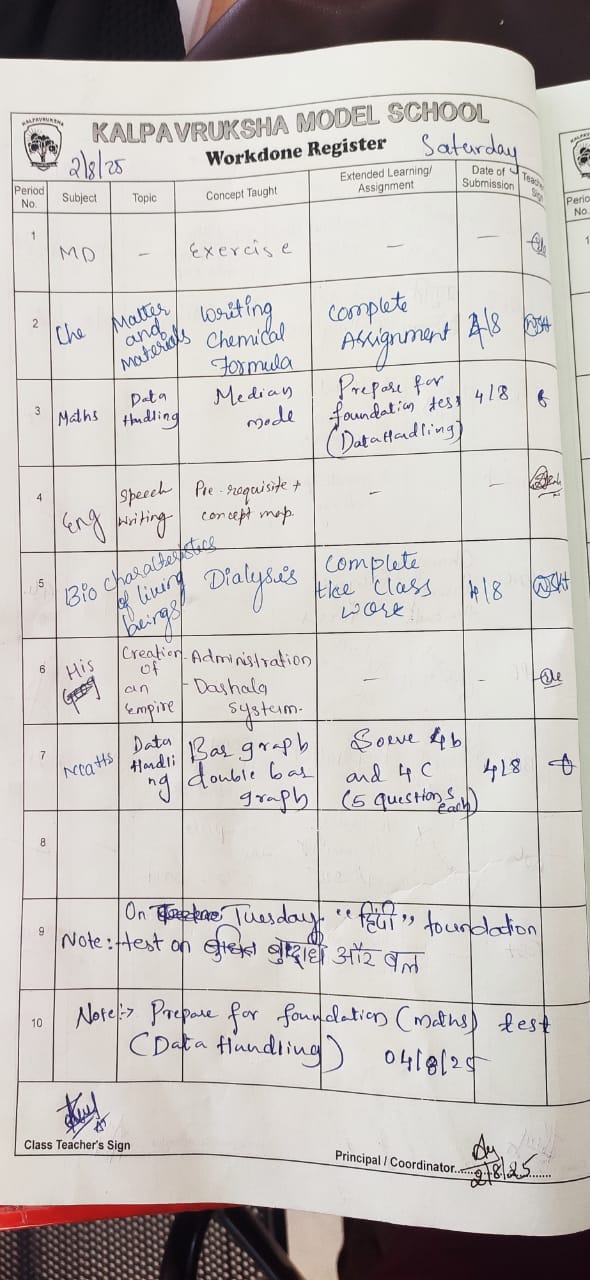 KALPAVRUKSHA
KALPAVRUKSHA MODEL SCHOOL
2/8/25 Workdone Register Saturday
Period No. Subject Topic Concept Taught Extended Learning/ Assignment Date of Submission Teacher Sign
1 MD - Exercise - -
2 Che Matter and Materials Writing Chemical Formula Complete Assignment 4/8
3 Maths Data Handling Median mode Prepare for foundation test (Data Handling) 4/8
4 Eng Speech writing Pre-requisite + concept map. - -
5 Bio Characteristics of living beings Dialysis Complete the class work. 4/8
6 His Creation of an Empire - Administration - Dashala system. - -
7 Maths Data Handling Bar graph double bar graph Solve 4b and 4C (5 questions each) 4/8
8
9 On Tuesday "हिंदी" foundation
Note: test on और वर्ण
10 Note:-> Prepare for foundation (maths) test
(Data Handling) 04/8/25
Class Teacher's Sign
Principal / Coordinator
2/8/25
Perio
No.
1